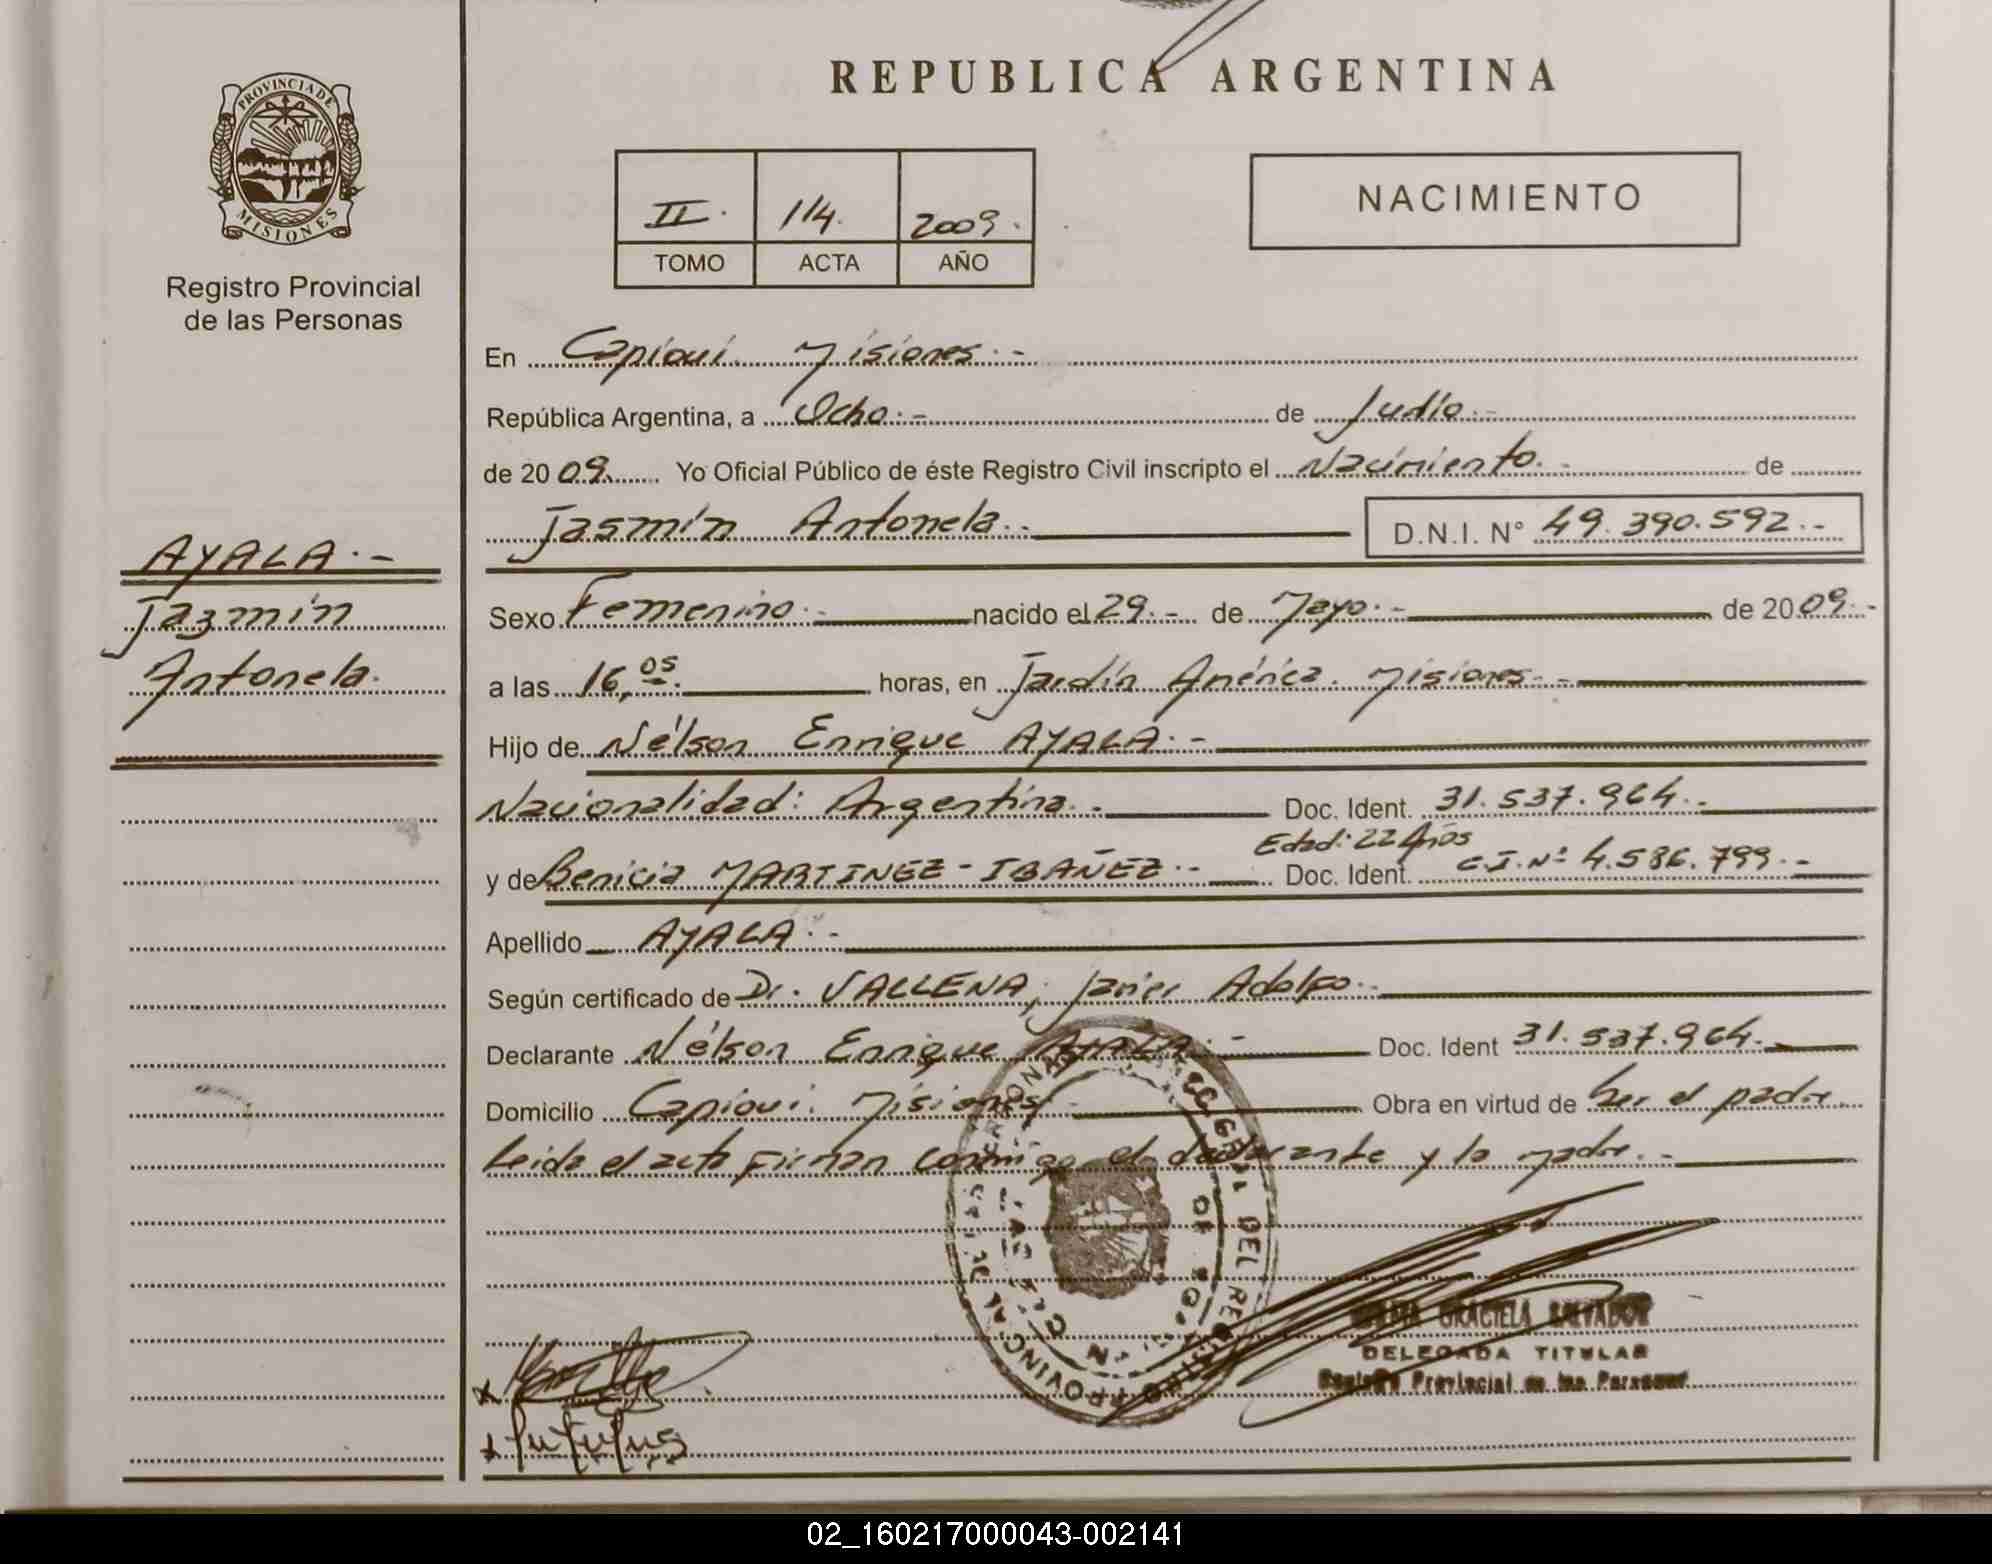 REPUBLICA ARGENTINA
PROVINCIA DE
MISIONES
Registro Provincial
de las Personas
II. 114. 2009.
TOMO ACTA AÑO
NACIMIENTO
En Capioui. Misiones.-
República Argentina, a Ocho.- de Judío.-
de 20 09. Yo Oficial Público de éste Registro Civil inscripto el Nacimiento.- de
Jasmín Antonela.- D.N.I. N° 49.390.592.-
AYALA.-
Jazmín
Antonela.
Sexo Femenino.- nacido el 29.- de Mayo.- de 20 09.-
a las 16,05. horas, en Jardín América. Misiones.-
Hijo de Nélson Enrique AYALA.-
Nacionalidad: Argentina.- Doc. Ident. 31.537.964.-
Edad: 22 Años
y de Benicia MARTINEZ-IBAÑEZ.- Doc. Ident. C.I.Nº 4.586.799.-
Apellido AYALA.-
Según certificado de Dr. VALLENA, Javier Adolfo.-
Declarante Nélson Enrique AYALA.- Doc. Ident 31.537.964.-
Domicilio Capioui. Misiones.- Obra en virtud de Ser el padre
Leida el acta Firman conmigo el declarante y la madre.-
GRACIELA SALVADOR
DELEGADA TITULAR
Registro Provincial de las Personas
02_160217000043-002141